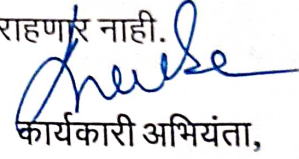 राहणार नाही.
कार्यकारी अभियंता,